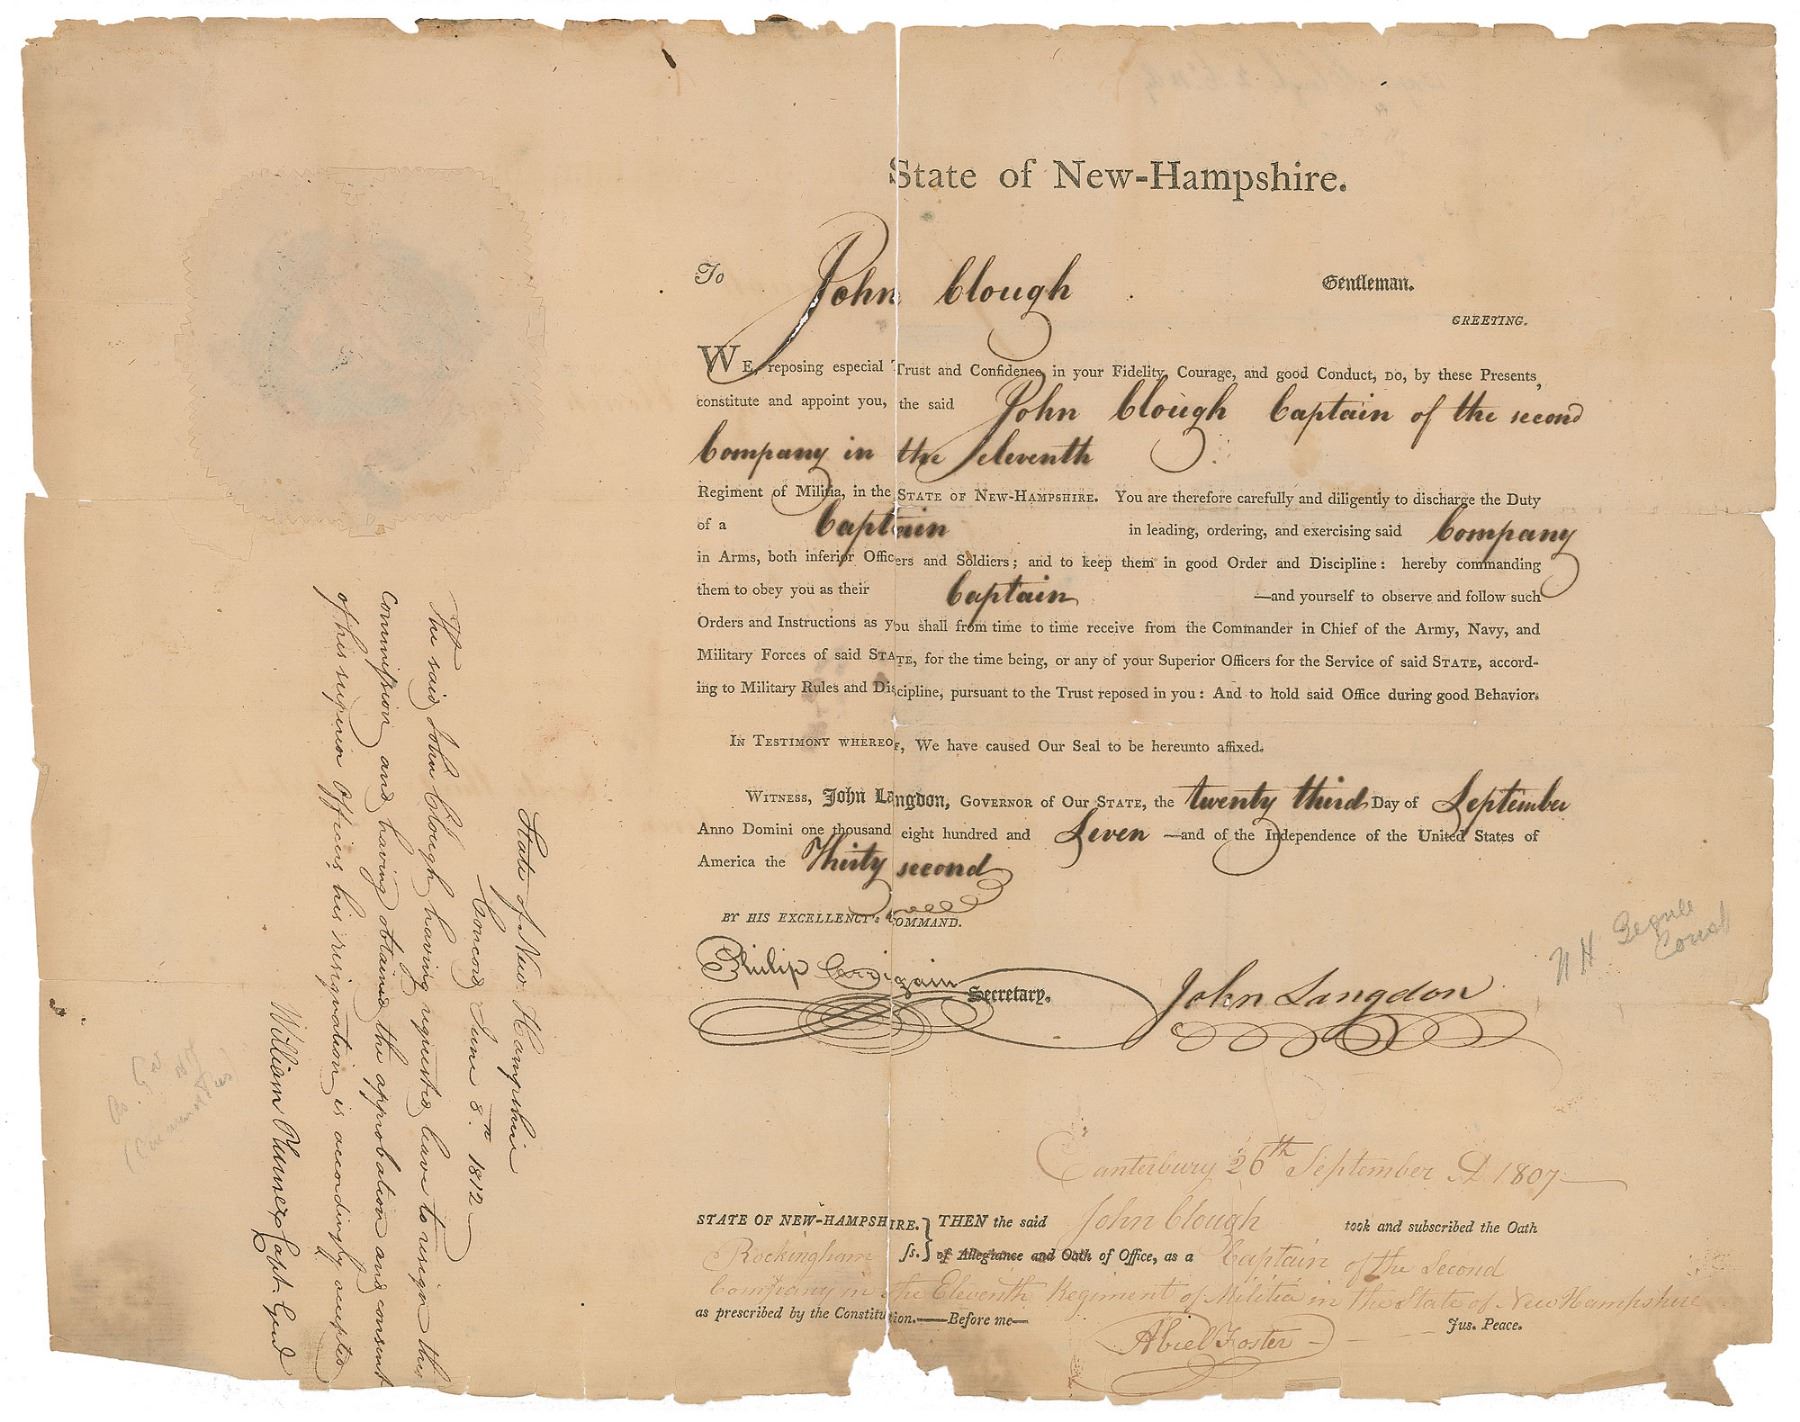 State of New-Hampshire.
To John Clough Gentleman.
GREETING.
WE, reposing especial Trust and Confidence in your Fidelity, Courage, and good Conduct, DO, by these Presents,
constitute and appoint you, the said John Clough Captain of the second
Company in the Eleventh
Regiment of Militia, in the STATE OF NEW-HAMPSHIRE. You are therefore carefully and diligently to discharge the Duty
of a Captain in leading, ordering, and exercising said Company
in Arms, both inferior Officers and Soldiers; and to keep them in good Order and Discipline: hereby commanding
them to obey you as their Captain —and yourself to observe and follow such
Orders and Instructions as you shall from time to time receive from the Commander in Chief of the Army, Navy, and
Military Forces of said STATE, for the time being, or any of your Superior Officers for the Service of said STATE, accord-
ing to Military Rules and Discipline, pursuant to the Trust reposed in you: And to hold said Office during good Behavior.
IN TESTIMONY WHEREOF, We have caused Our Seal to be hereunto affixed.
WITNESS, John Langdon, GOVERNOR OF OUR STATE, the twenty third Day of September
Anno Domini one thousand eight hundred and Seven —and of the Independence of the United States of
America the Thirty second
BY HIS EXCELLENCY's COMMAND.
Philip Carrigain Secretary. John Langdon
N H
Canterbury 26th September AD 1807
STATE OF NEW-HAMPSHIRE. } THEN the said John Clough took and subscribed the Oath
Rockingham ss. } of Allegiance and Oath of Office, as a Captain of the Second
Company in the Eleventh Regiment of Militia in the State of New Hampshire
as prescribed by the Constitution.—Before me—
Abiel Foster Jus. Peace.
State of New Hampshire
Concord June 8th 1812
The said John Clough having requested leave to resign this
Commission and having obtained the approbation and consent
of his superior Officers, his resignation is accordingly accepted
William Plumer Capt. Genl